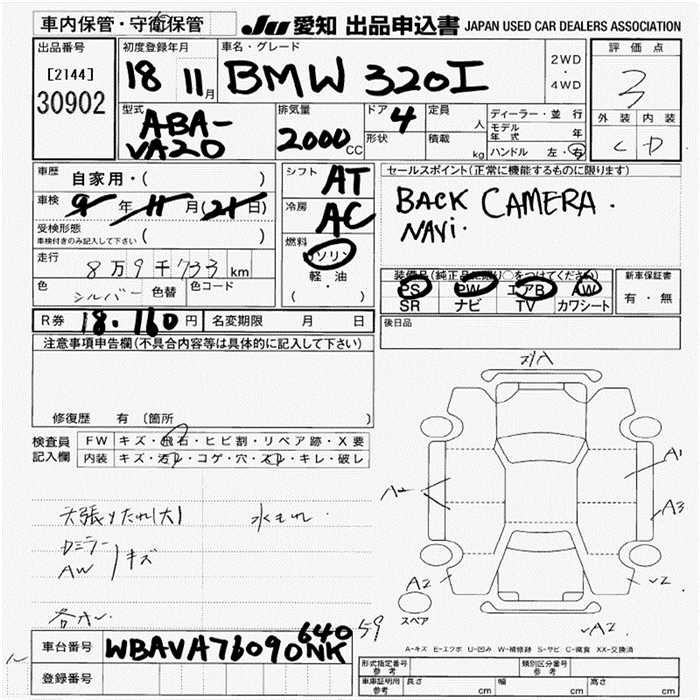 車内保管・守衛保管
JU 愛知 出品申込書 JAPAN USED CAR DEALERS ASSOCIATION
出品番号
[2144]
30902
初度登録年月
18 11月
車名・グレード
BMW 320I
2WD
・
4WD
評価点
3
外装 内装
C D
型式
ABA-
VA20
排気量
2000CC
ドア 4
形状
定員 人
積載 kg
ディーラー・並行
モデル年式 年
ハンドル 左・右
車歴 自家用・( )
車検 9年11月(21日)
受検形態
車検付きのみ記入して下さい ( )
走行 8万9千733km
色 シルバー 色替 色コード
シフト AT
冷房 AC
燃料
ガソリン
軽・油
( )
セールスポイント(正常に機能するものに限ります)
BACK CAMERA.
NAVi.
装備品(純正品に限り○をつけてください)
PS PW エアB AW
SR ナビ TV カワシート
新車保証書
有・無
R券 18.160円 名変期限 月 日
後日品
注意事項申告欄(不具合内容等は具体的に記入して下さい)
修復歴 有 〔箇所 〕
検査員
記入欄
FW キズ・飛石・ヒビ割・リペア跡・X要
内装 キズ・汚レ・コゲ・穴・スレ・キレ・破レ
天張りたれ(大) 水もれ.
カミラー
AW
キズ
A1
A2
A3
A2
√2
スペア
√A2
59
A-キズ E-エクボ U-凹み W-補修跡 S-サビ C-腐食 XX-交換済
車台番号 WBAVA76090NK
640
登録番号
形式指定番号
参考
類別区分番号
参考
車庫証明用
参考
長さ cm
幅 cm
高さ cm